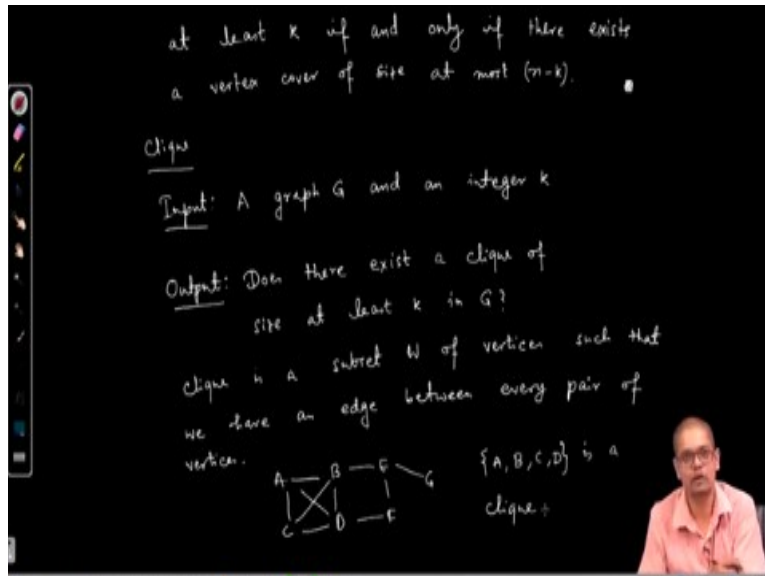 at least k if and only if there exists
a vertex cover of size at most (n-k).
Clique
Input: A graph G and an integer k
Output: Does there exist a clique of
size at least k in G?
clique is a subset W of vertices such that
we have an edge between every pair of
vertices.
A B E G
{A, B, C, D} is a
C D F
clique